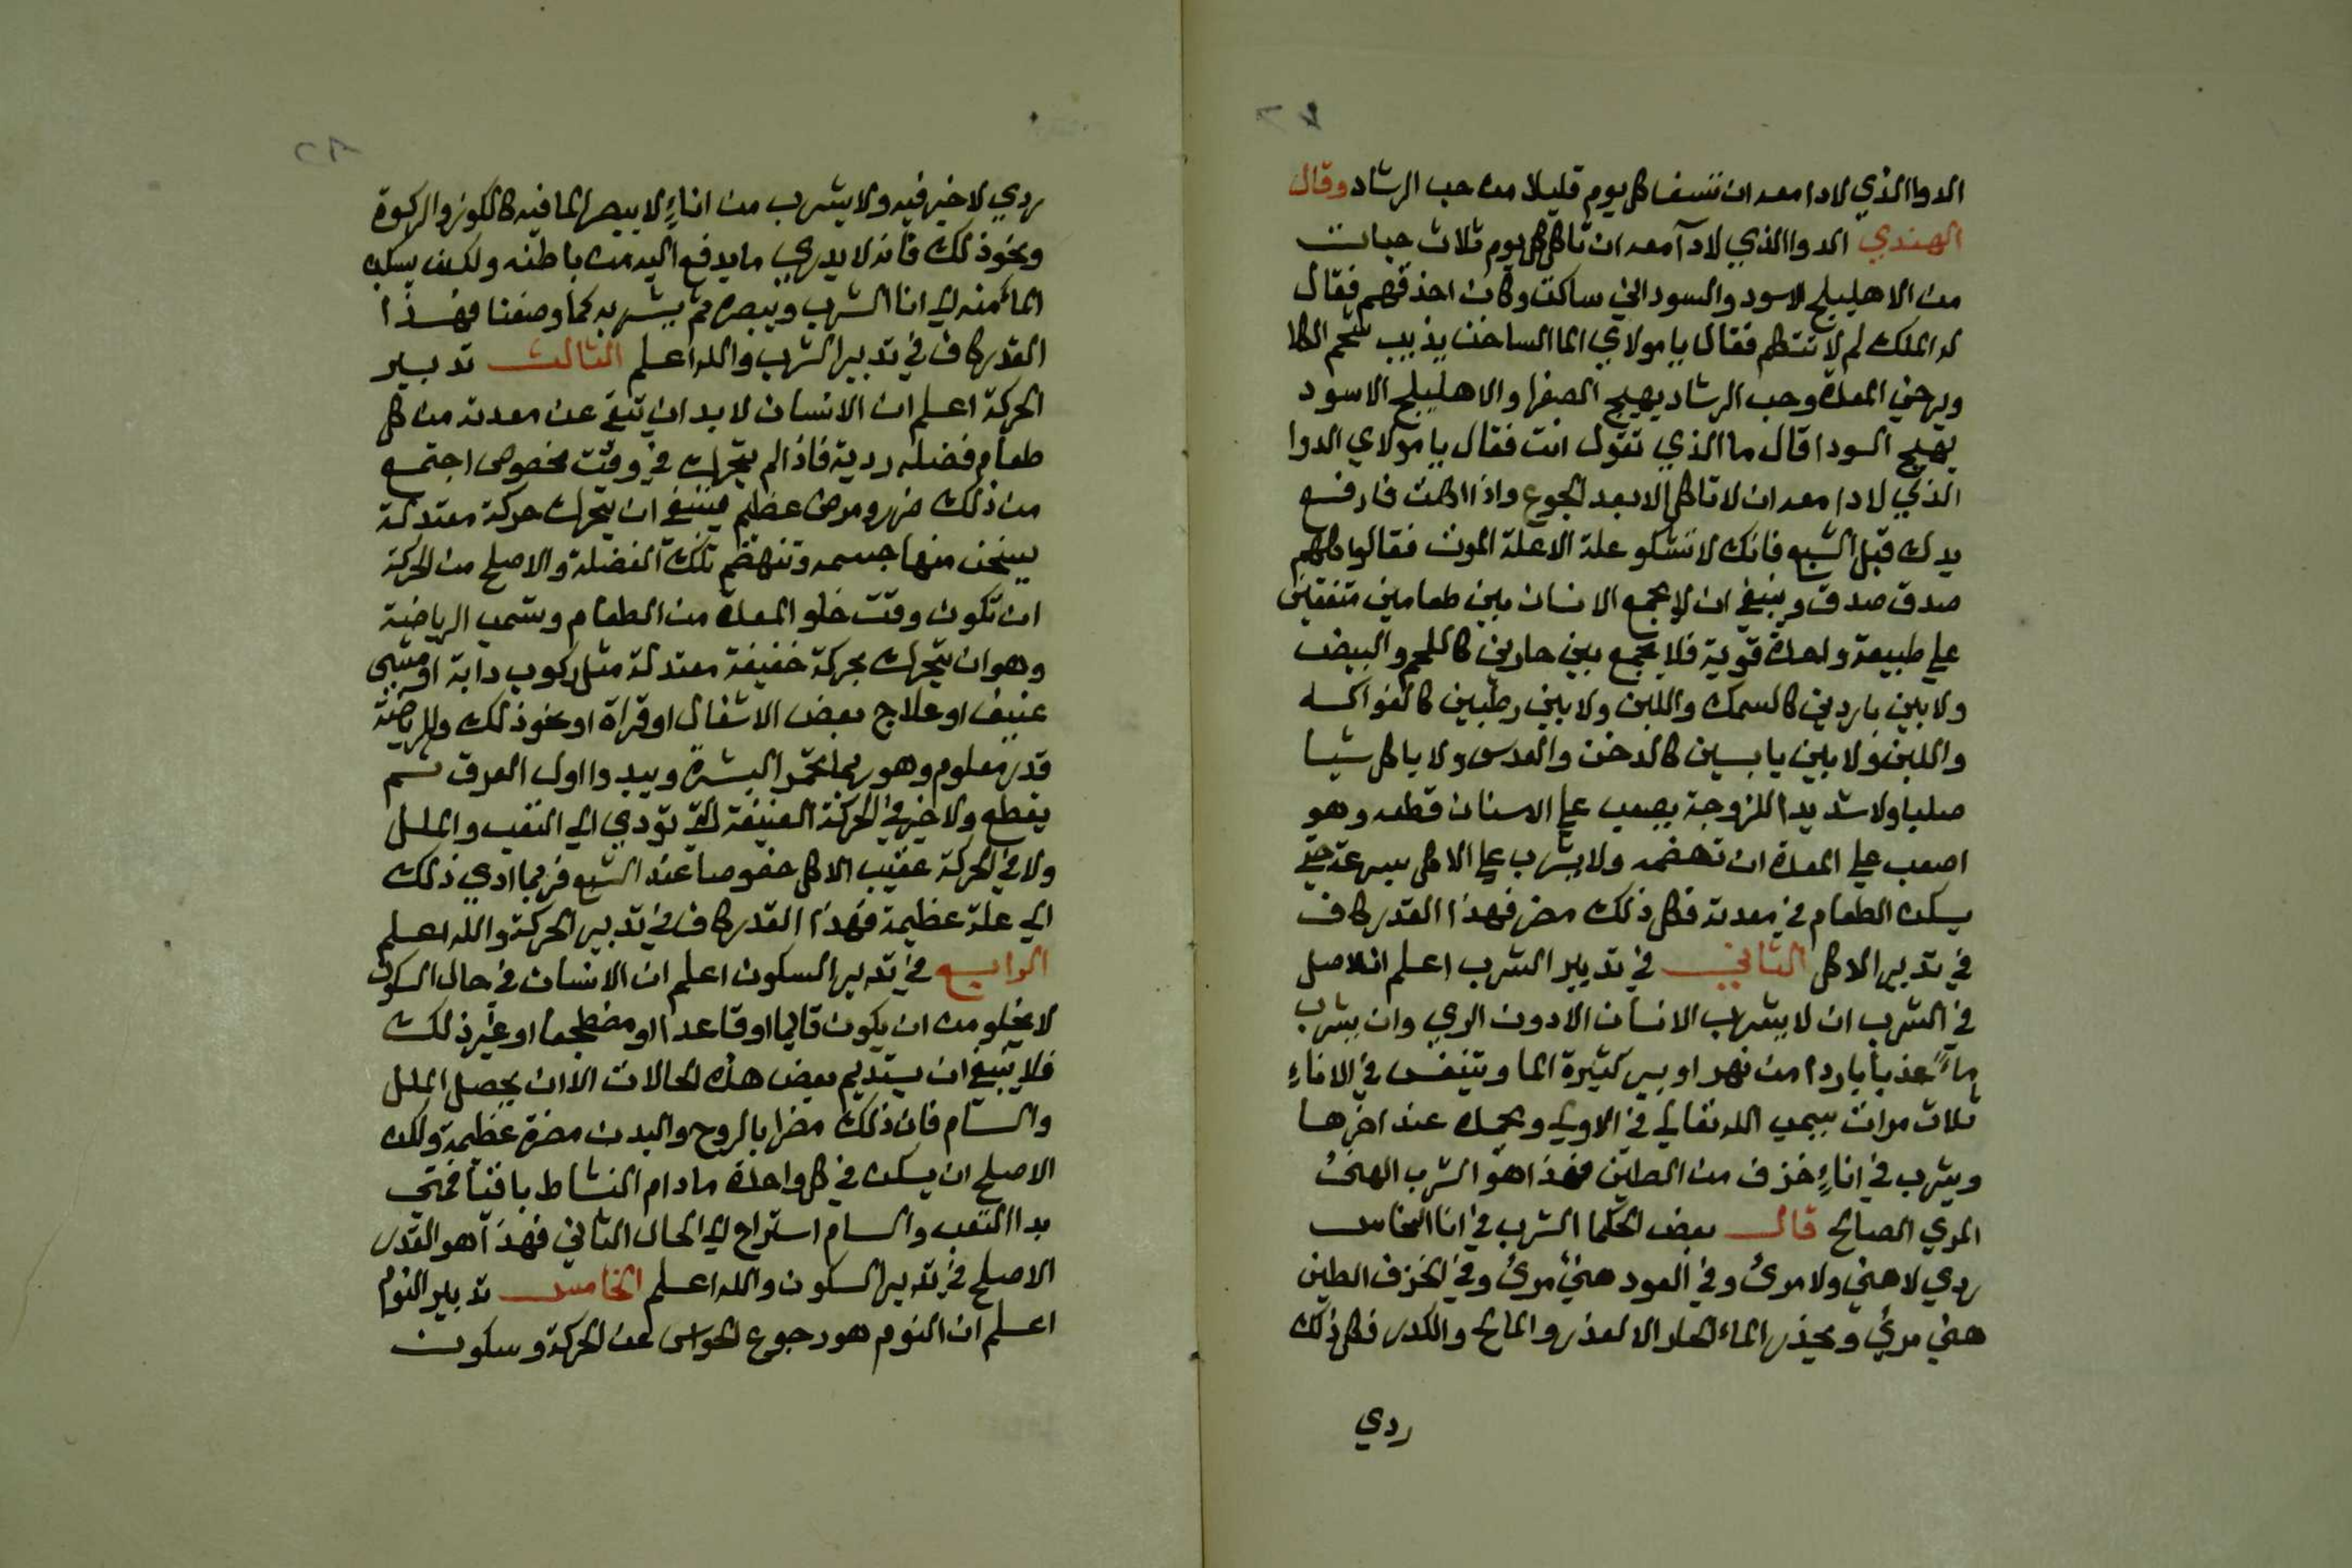 الدوا الذي لا دا معه ان تسف كل يوم قليلا من حب الرشاد وقال
الهندي الدوا الذي لا دآ معه ان تاكل كل يوم ثلاث حبات
من الاهليلج الاسود والسوداني ساكت وكان احذقهم فقال
له الملك لم لا تتكلم فقال يا مولاي الما الساخن يذيب شحم الكلا
ويرخي المعدة وحب الرشاد يهيج الصفرا والاهليلج الاسود
يهيج السودا قال ما الذي تقول انت فقال يا مولاي الدوا
الذي لا دا معه ان لا تاكل الا بعد الجوع واذا اكلت فارفع
يدك قبل الشبع فانك لا تشكو علة الا علة الموت فقالوا كلهم
صدق صدق وينبغي ان لا يجمع الانسان بين طعامين متفقين
علي طبيعة واحدة قوية فلا يجمع بين حارين كاللحم والبيض
ولا بين باردين كالسمك واللبن ولا بين رطبين كالفواكه
واللبن ولا بين يابسين كالدخن والعدس ولا ياكل شيا
صلبا ولا شديد اللزوجة يصعب علي الاسنان قطعه وهو
اصعب علي المعدة ان تهضمه ولا يشرب علي الاكل بسرعة حتي
يسكن الطعام في معدته فكل ذلك مضر فهذا القدر كاف
في تدبير الاكل الثاني في تدبير الشرب اعلم ان الاصل
في الشرب ان لا يشرب الانسان الا دون الري وان يشرب
ماءً عذبا باردا من نهر او بير كثيرة الما ويتنفس في الاناءِ
ثلاث مرات يسمي الله تعالي في الاولي ويحمده عند اخرها
ويشرب في اناءٍ خزف من الطين فهذا هو الشرب الهنئ
المري الصالح قال بعض الحكما الشرب في انا النحاس
ردي لا هني ولا مرئ وفي العود هنئ مرئ وفي الخزف الطين
هني مرئ ويحذر الماء الحار الا لعذر والمالح والكدر فكل ذلك
ردي
ردي لا خير فيه ولا يشرب من اناءٍ لا يبصر الما فيه كالكوز والركوة
ونحو ذلك فانه لا يدري ما يدفع اليه من باطنه ولكن يسكب
الماء منه الي انا الشرب ويبصره ثم يشربه كما وصفنا فهذا
القدر كاف في تدبير الشرب والله اعلم الثالث تدبير
الحركة اعلم ان الانسان لا بد ان تبقي عن معدته من كل
طعام فضله ردية فاذا لم يتحرك في وقت مخصوص اجتمع
من ذلك ضرر ومرض عظيم فينبغي ان يتحرك حركة معتدلة
يسخن منها جسمه وتنهضم تلك الفضلة والاصلح من الحركة
ان تكون وقت خلو المعدة من الطعام وتسمي الرياضة
وهو ان يتحرك بحركة خفيفة معتدلة مثل ركوب دابة او مشي
عنيف او علاج بعض الاشغال او قراة او نحو ذلك وللرياضة
قدر معلوم وهو ربما تحمر البشرة ويبدوا اول العرق ثم
يقطع ولا خير في الحركة العنيفة التي تودي الي التعب والملل
ولا في الحركة عقيب الاكل خصوصا عند الشبع فربما ادي ذلك
الي علة عظيمة فهذا القدر كاف في تدبير الحركة والله اعلم
الرابع في تدبير السكون اعلم ان الانسان في حال السكون
لا يخلو من ان يكون قايما او قاعدا او مضطجعا او غير ذلك
فلا ينبغي ان يستديم بعض هذه الحالات الا ان يحصل الملل
والسام فان ذلك مضرا بالروح والبدن مضرة عظيمة ولكن
الاصلح ان يسكن في كل واحدة ما دام النشاط باقيا فمتي
بدا التعب والسام استراح الي الحال الثاني فهذا هو القدر
الاصلح في تدبير السكون والله اعلم الخامس تدبير النوم
اعلم ان النوم هو رجوع الحواس عن الحركة وسكون